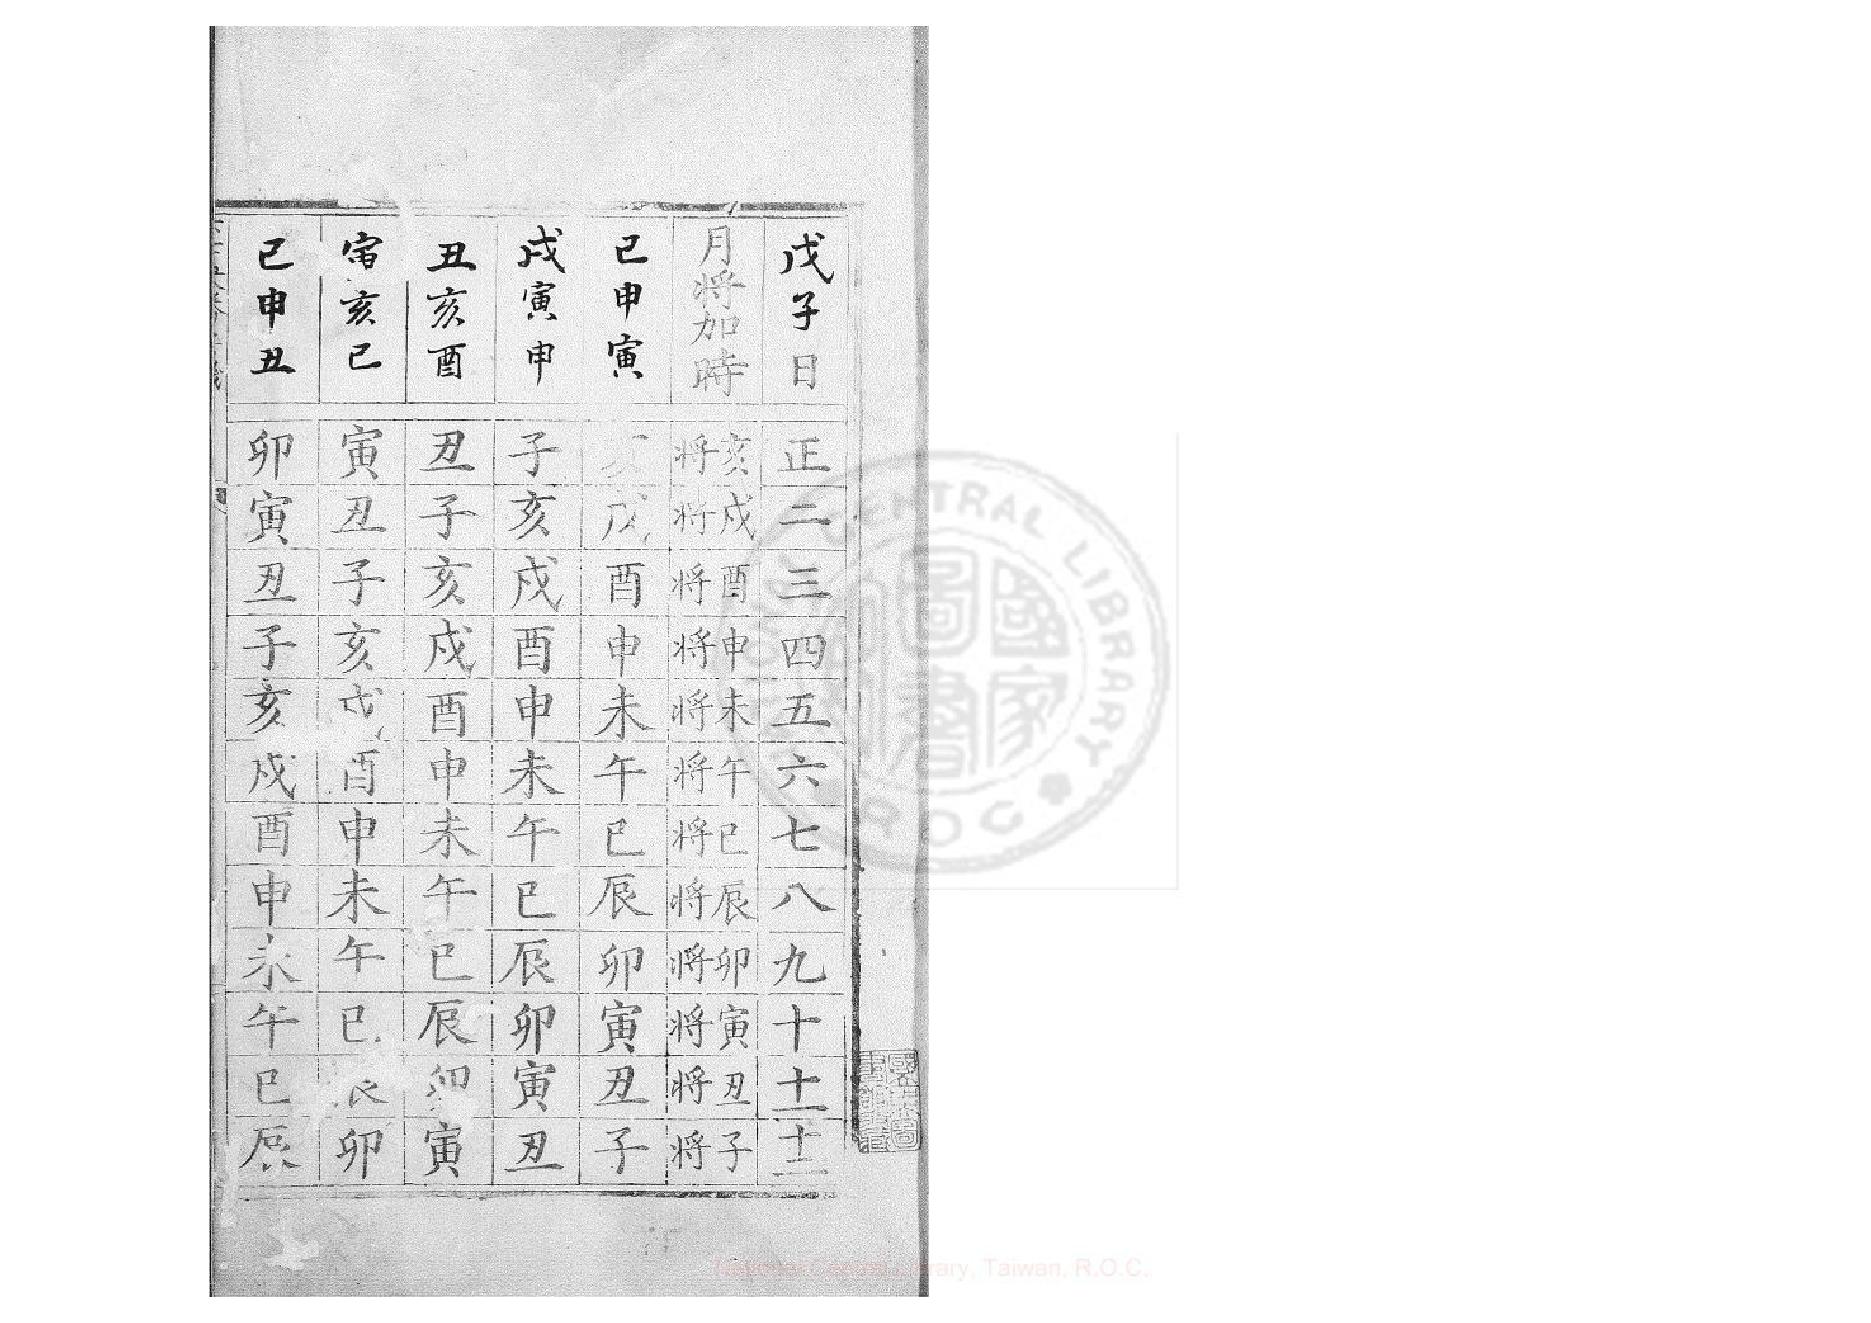 戊子日正二三四五六七八九十十一十二
月將加時亥將戌將酉將申將未將午將巳將辰將卯將寅將丑將子將
巳申寅亥戌酉申未午巳辰卯寅丑子
戌寅申子亥戌酉申未午巳辰卯寅丑
丑亥酉丑子亥戌酉申未午巳辰卯寅
寅亥巳寅丑子亥戌酉申未午巳辰卯
巳申丑卯寅丑子亥戌酉申未午巳辰
CENTRAL LIBRARY
R.O.C
國家圖書
National Central Library, Taiwan, R.O.C.